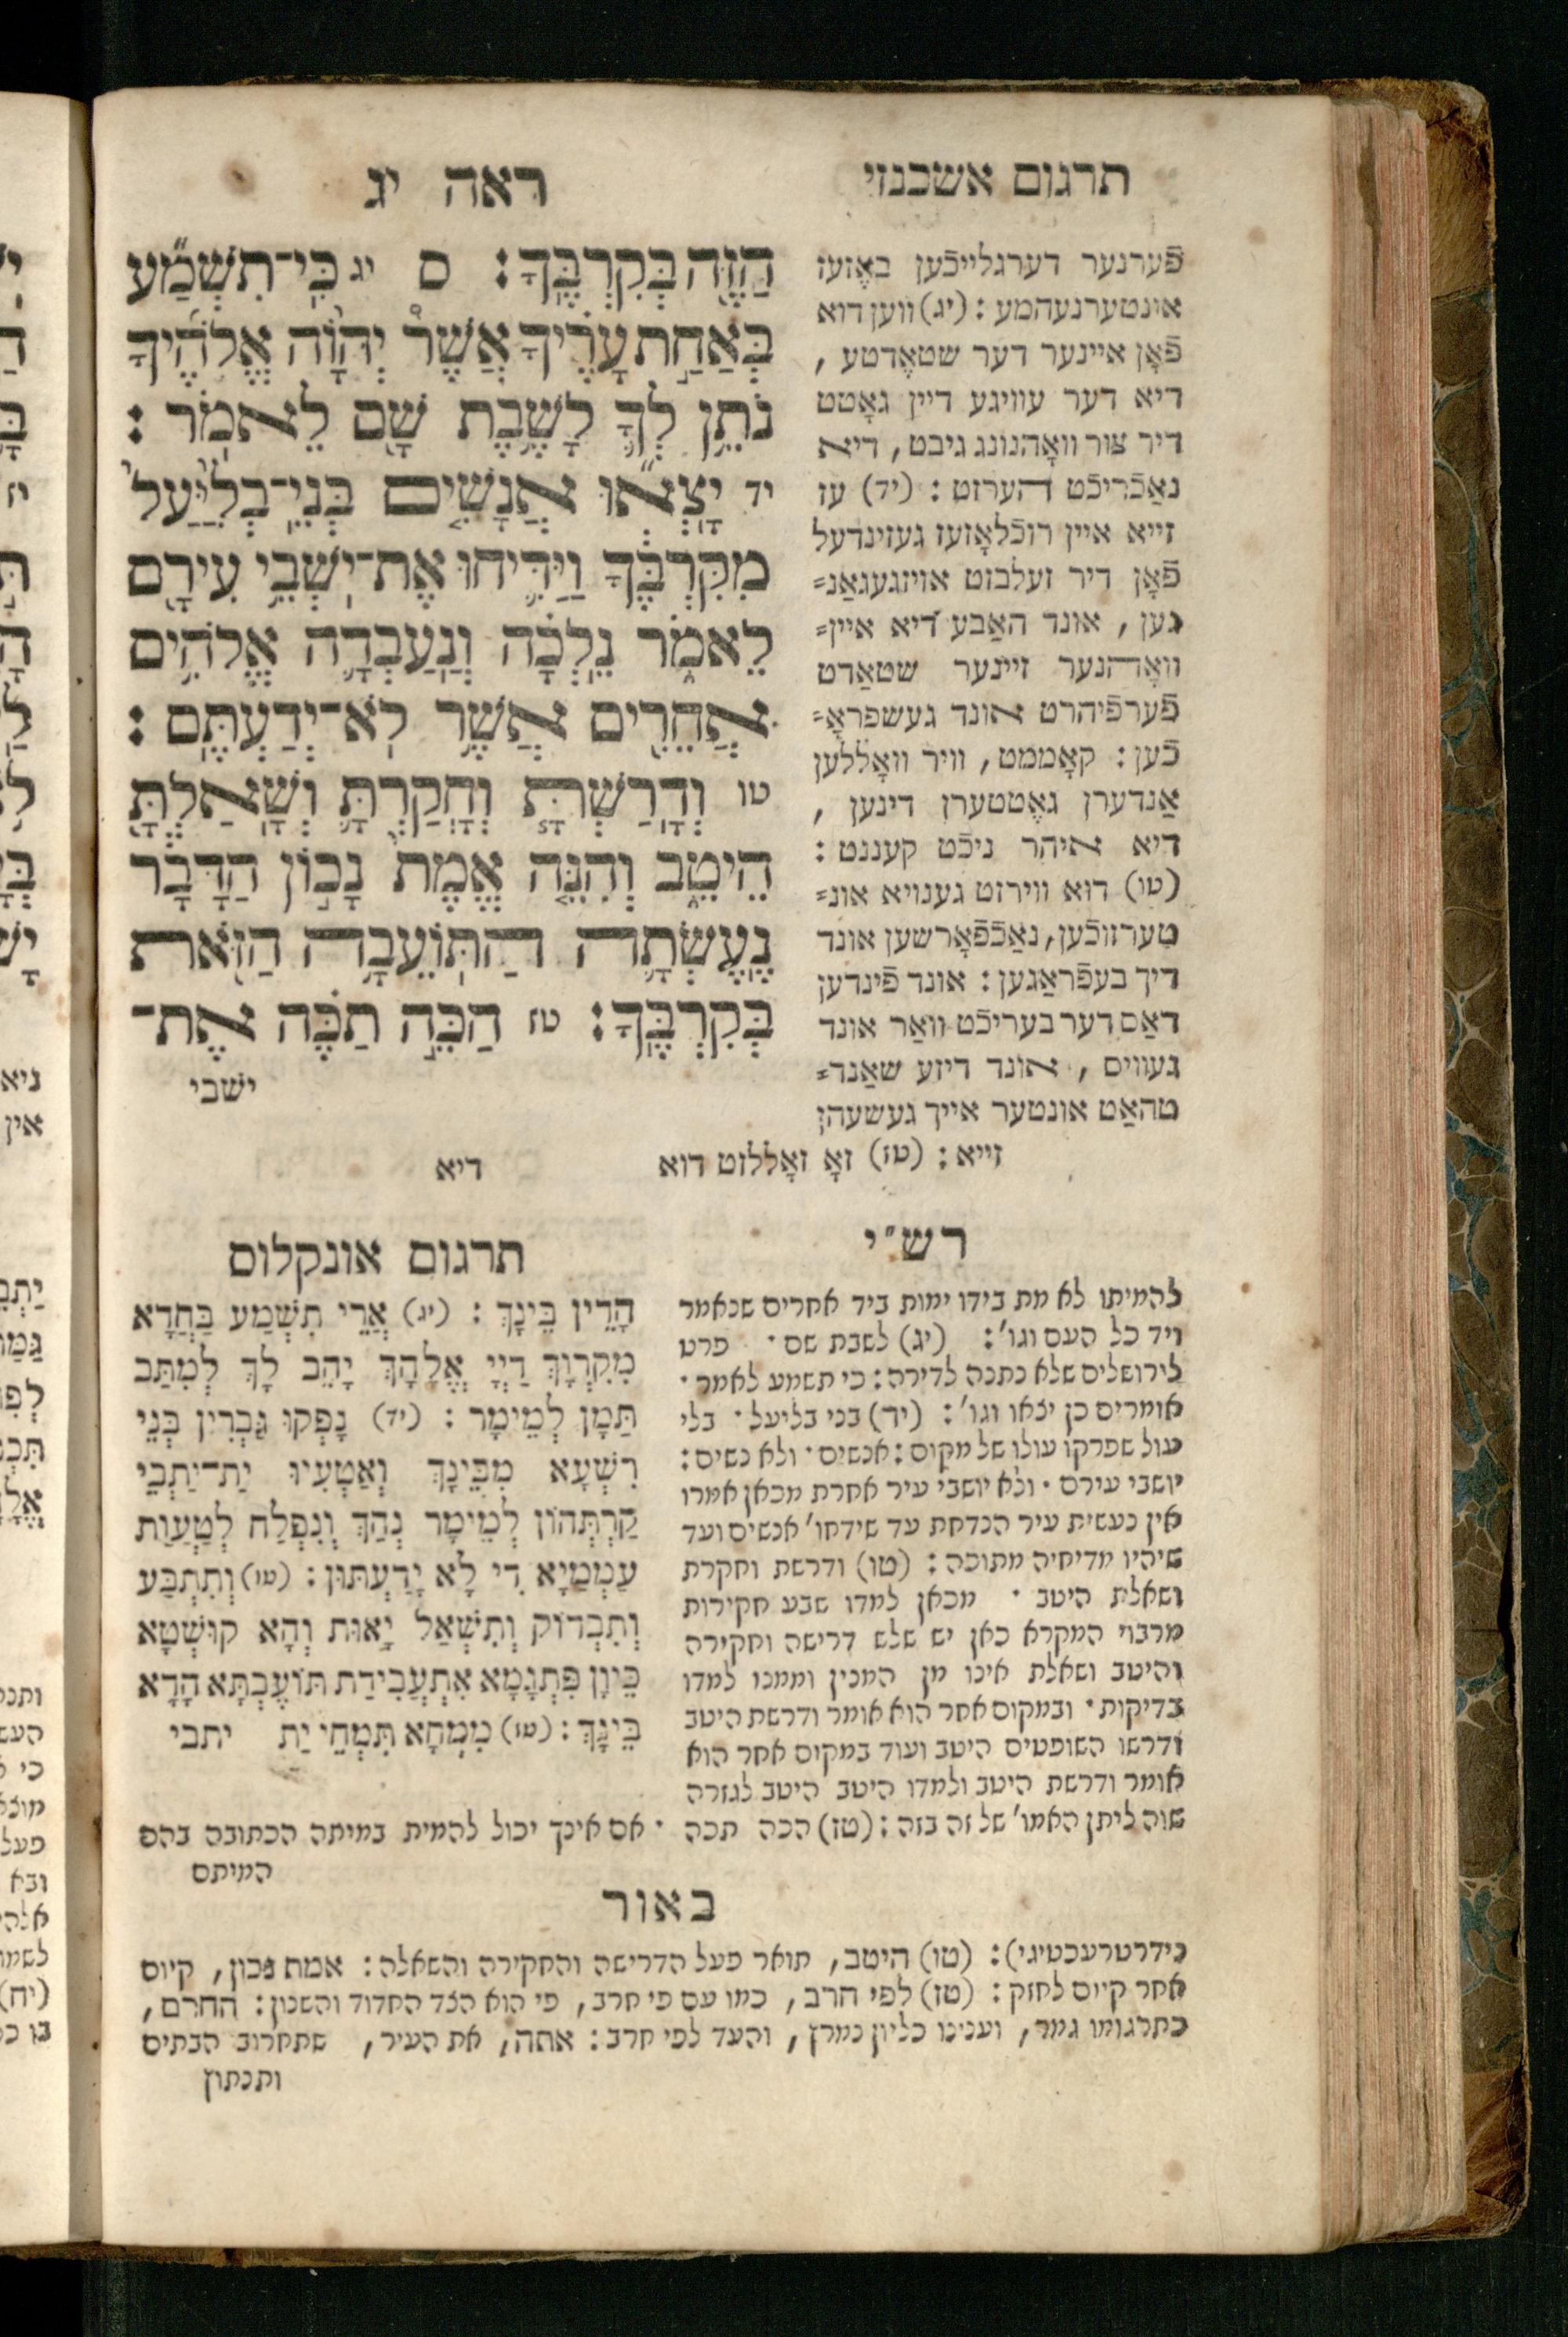 תרגום אשכנזי
ראה יג
הַזֶּ֖ה בְּקִרְבֶּֽךָ׃ ס יג כִּֽי־תִשְׁמַ֞ע
בְּאַחַ֣ת עָרֶ֗יךָ אֲשֶׁר֩ יְהוָ֨ה אֱלֹהֶ֜יךָ
נֹתֵ֥ן לְךָ֛ לָשֶׁ֥בֶת שָׁ֖ם לֵאמֹֽר׃
יד יָצְא֞וּ אֲנָשִׁ֤ים בְּנֵֽי־בְלִיַּ֨עַל֙
מִקִּרְבֶּ֔ךָ וַיַּדִּ֛יחוּ אֶת־יֹשְׁבֵ֥י עִירָ֖ם
לֵאמֹ֑ר נֵֽלְכָ֗ה וְנַעַבְדָ֛ה אֱלֹהִ֥ים
אֲחֵרִ֖ים אֲשֶׁ֥ר לֹֽא־יְדַעְתֶּֽם׃
טו וְדָֽרַשְׁתָּ֧ וְחָֽקַרְתָּ֛ וְשָֽׁאַלְתָּ֖
הֵיטֵ֑ב וְהִנֵּ֤ה אֱמֶת֙ נָכ֣וֹן הַדָּבָ֔ר
נֶֽעֶשְׂתָ֛ה הַתּֽוֹעֵבָ֥ה הַזֹּ֖את
בְּקִרְבֶּֽךָ׃ טז הַכֵּ֣ה תַכֶּ֗ה אֶת־
ישבי
פֿערנער דערגלייכֿען באָזעז
אונטערנעהמע: (יג) ווען דוא
פֿאָן איינער דער שטאָדטע,
דיא דער עוויגע דיין גאָטט
דיר צור וואָהנונג גיבט, דיא
נאַכֿריכֿט הערזט: (יד) עז
זייא איין רוכֿלאָזעז געזינדעל
פֿאָן דיר זעלבזט אויזגעגאַנ=
גען, אונד האַבע דיא איין=
וואָהנער זיינער שטאַדט
פֿערפֿיהרט אונד געשפראָ=
כֿען: קאָממט, וויר וואָללען
אַנדערן גאָטטערן דינען,
דיא איהר ניכֿט קעננט:
(טו) דוא ווירזט גענויא אונ=
טערזוכֿען, נאַכֿפֿאָרשען אונד
דיך בעפֿראַגען: אונד פֿינדען
דאַס דער בעריכֿט וואַר אונד
געוויס, אונד דיזע שאַנד=
טהאַט אונטער אייך געשעהן
זייא: (טז) זאָ זאָללזט דוא
דיא
רש"י
להמיתו לא מת בידו ימות ביד אחרים שנאמר
ויד כל העם וגו': (יג) לשבת שם · פרט
לירושלים שלא נתנה לדירה: כי תשמע לאמר ·
אומרים כן יצאו וגו': (יד) בני בליעל · בלי
עול שפרקו עולו של מקום: אנשים · ולא נשים:
יושבי עירם · ולא יושבי עיר אחרת מכאן אמרו
אין נעשית עיר הנדחת עד שידחו' אנשים ועד
שיהיו מדיחיה מתוכה: (טו) ודרשת וחקרת
ושאלת היטב · מכאן למדו שבע חקירות
מרבוי המקרא כאן יש שלש דרישה וחקירה
והיטב ושאלת אינו מן המנין וממנו למדו
בדיקות · ובמקום אחר הוא אומר ודרשת היטב
ודרשו השופטים היטב ועוד במקום אחר הוא
אומר ודרשת היטב ולמדו היטב היטב לגזרה
שוה ליתן האמו' של זה בזה: (טז) הכה תכה · אם אינך יכול להמית במיתה הכתובה בהם
המיתם
תרגום אונקלוס
הָדֵין בֵּינָךְ: (יג) אֲרֵי תִשְׁמַע בַּחֲדָא
מִקִרְוָךְ דַיְיָ אֱלָהָךְ יָהֵב לָךְ לְמִתַּב
תַּמָן לְמֵימָר: (יד) נָפְקוּ גֻבְרִין בְּנֵי
רִשְׁעָא מִבֵּינָךְ וְאַטְעִיוּ יַת־יַתְבֵי
קַרְתְּהוֹן לְמֵימָר נְהַךְ וְנִפְלַח לְטַעֲוַת
עַמְמַיָא דִי לָא יְדַעְתּוּן: (טו) וְתִתְבַּע
וְתִבְדוֹק וְתִשְׁאַל יָאוּת וְהָא קוּשְׁטָא
כֵּיוָן פִּתְגָמָא אִתְעֲבִידַת תּוֹעֶבְתָּא הָדָא
בֵּינָךְ: (טז) מִמְחָא תִּמְחֵי יַת יתבי
באור
נידרטרעכטיגי): (טו) היטב, תואר פעל הדרישה והחקירה והשאלה: אמת נכון, קיום
אחר קיום לחזק: (טז) לפי חרב, כמו עם פי חרב, פי הוא הצד החדוד והשנון: החרם,
כתרגומו גמר, וענינו כליון נמרץ, והעד לפי חרב: אתה, את העיר, שתחרוב הבתים
ותנתוץ